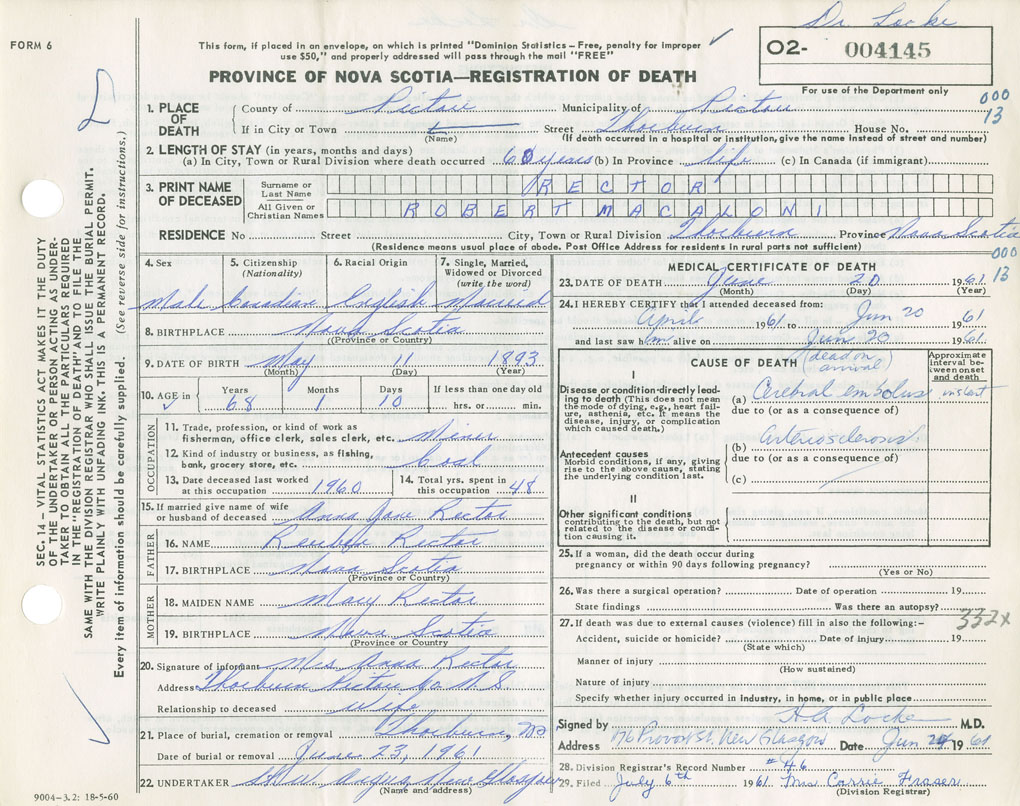 Dr. Locke
FORM 6
This form, if placed in an envelope, on which is printed "Dominion Statistics – Free, penalty for improper
use $50," and properly addressed will pass through the mail "FREE"
O2- 004145
For use of the Department only
PROVINCE OF NOVA SCOTIA—REGISTRATION OF DEATH
000
13
1. PLACE OF DEATH
County of Pictou Municipality of Pictou
If in City or Town (Name) Street Thorburn House No.
(If death occurred in a hospital or institution, give the name instead of street and number)
2. LENGTH OF STAY (in years, months and days)
(a) In City, Town or Rural Division where death occurred 60 years (b) In Province life (c) In Canada (if immigrant)
3. PRINT NAME OF DECEASED
Surname or Last Name RECTOR
All Given or Christian Names ROBERT MACALONI
RESIDENCE No Street City, Town or Rural Division Thorburn Province Nova Scotia
(Residence means usual place of abode. Post Office Address for residents in rural parts not sufficient)
4. Sex Male
5. Citizenship (Nationality) Canadian
6. Racial Origin English
7. Single, Married, Widowed or Divorced (write the word) Married
8. BIRTHPLACE Nova Scotia
(Province or Country)
9. DATE OF BIRTH May 11 1893
(Month) (Day) (Year)
10. AGE in Years 68 Months 1 Days 10 If less than one day old hrs. or min.
OCCUPATION
11. Trade, profession, or kind of work as
fisherman, office clerk, sales clerk, etc. Miner
12. Kind of industry or business, as fishing,
bank, grocery store, etc. Coal
13. Date deceased last worked
at this occupation 1960
14. Total yrs. spent in
this occupation 48
15. If married give name of wife
or husband of deceased Anna Jane Rector
FATHER
16. NAME Reuben Rector
17. BIRTHPLACE Nova Scotia
(Province or Country)
MOTHER
18. MAIDEN NAME Mary Rector
19. BIRTHPLACE Nova Scotia
(Province or Country)
20. Signature of informant Mrs Anna Rector
Address Thorburn Pictou Co N S
Relationship to deceased Wife
21. Place of burial, cremation or removal Thorburn, NS
Date of burial or removal June 23, 1961
22. UNDERTAKER Angus New Glasgow
(Name and address)
9004-3.2: 18-5-60
MEDICAL CERTIFICATE OF DEATH
000
13
23. DATE OF DEATH June 20 1961
(Month) (Day) (Year)
24. I HEREBY CERTIFY that I attended deceased from:
April 1961 to Jun 20 1961
and last saw him alive on Jun 20 1961
(dead on arrival)
CAUSE OF DEATH
Approximate interval between onset and death
I
Disease or condition directly leading to death (This does not mean the mode of dying, e.g., heart failure, asthenia, etc. It means the disease, injury, or complication which caused death.)
(a) Cerebral embolus instant
due to (or as a consequence of)
arteriosclerosis
Antecedent causes
Morbid conditions, if any, giving rise to the above cause, stating the underlying condition last.
(b)
due to (or as a consequence of)
(c)
II
Other significant conditions
contributing to the death, but not related to the disease or condition causing it.
25. If a woman, did the death occur during
pregnancy or within 90 days following pregnancy?
(Yes or No)
26. Was there a surgical operation? Date of operation 19
State findings Was there an autopsy?
332x
27. If death was due to external causes (violence) fill in also the following:-
Accident, suicide or homicide? Date of injury 19
(State which)
Manner of injury
(How sustained)
Nature of injury
Specify whether injury occurred in industry, in home, or in public place
Signed by H.A. Locke M.D.
Address 176 Provost St. New Glasgow Date Jun 1961
28. Division Registrar's Record Number #46
29. Filed July 6th 1961 Mrs Carrie Fraser
(Division Registrar)
SEC. 14 – VITAL STATISTICS ACT MAKES IT THE DUTY
OF THE UNDERTAKER OR PERSON ACTING AS UNDER-
TAKER TO OBTAIN ALL THE PARTICULARS REQUIRED
IN THE "REGISTRATION OF DEATH" AND TO FILE THE
SAME WITH THE DIVISION REGISTRAR WHO SHALL ISSUE THE BURIAL PERMIT.
WRITE PLAINLY WITH UNFADING INK. THIS IS A PERMANENT RECORD.
Every item of information should be carefully supplied. (See reverse side for instructions.)